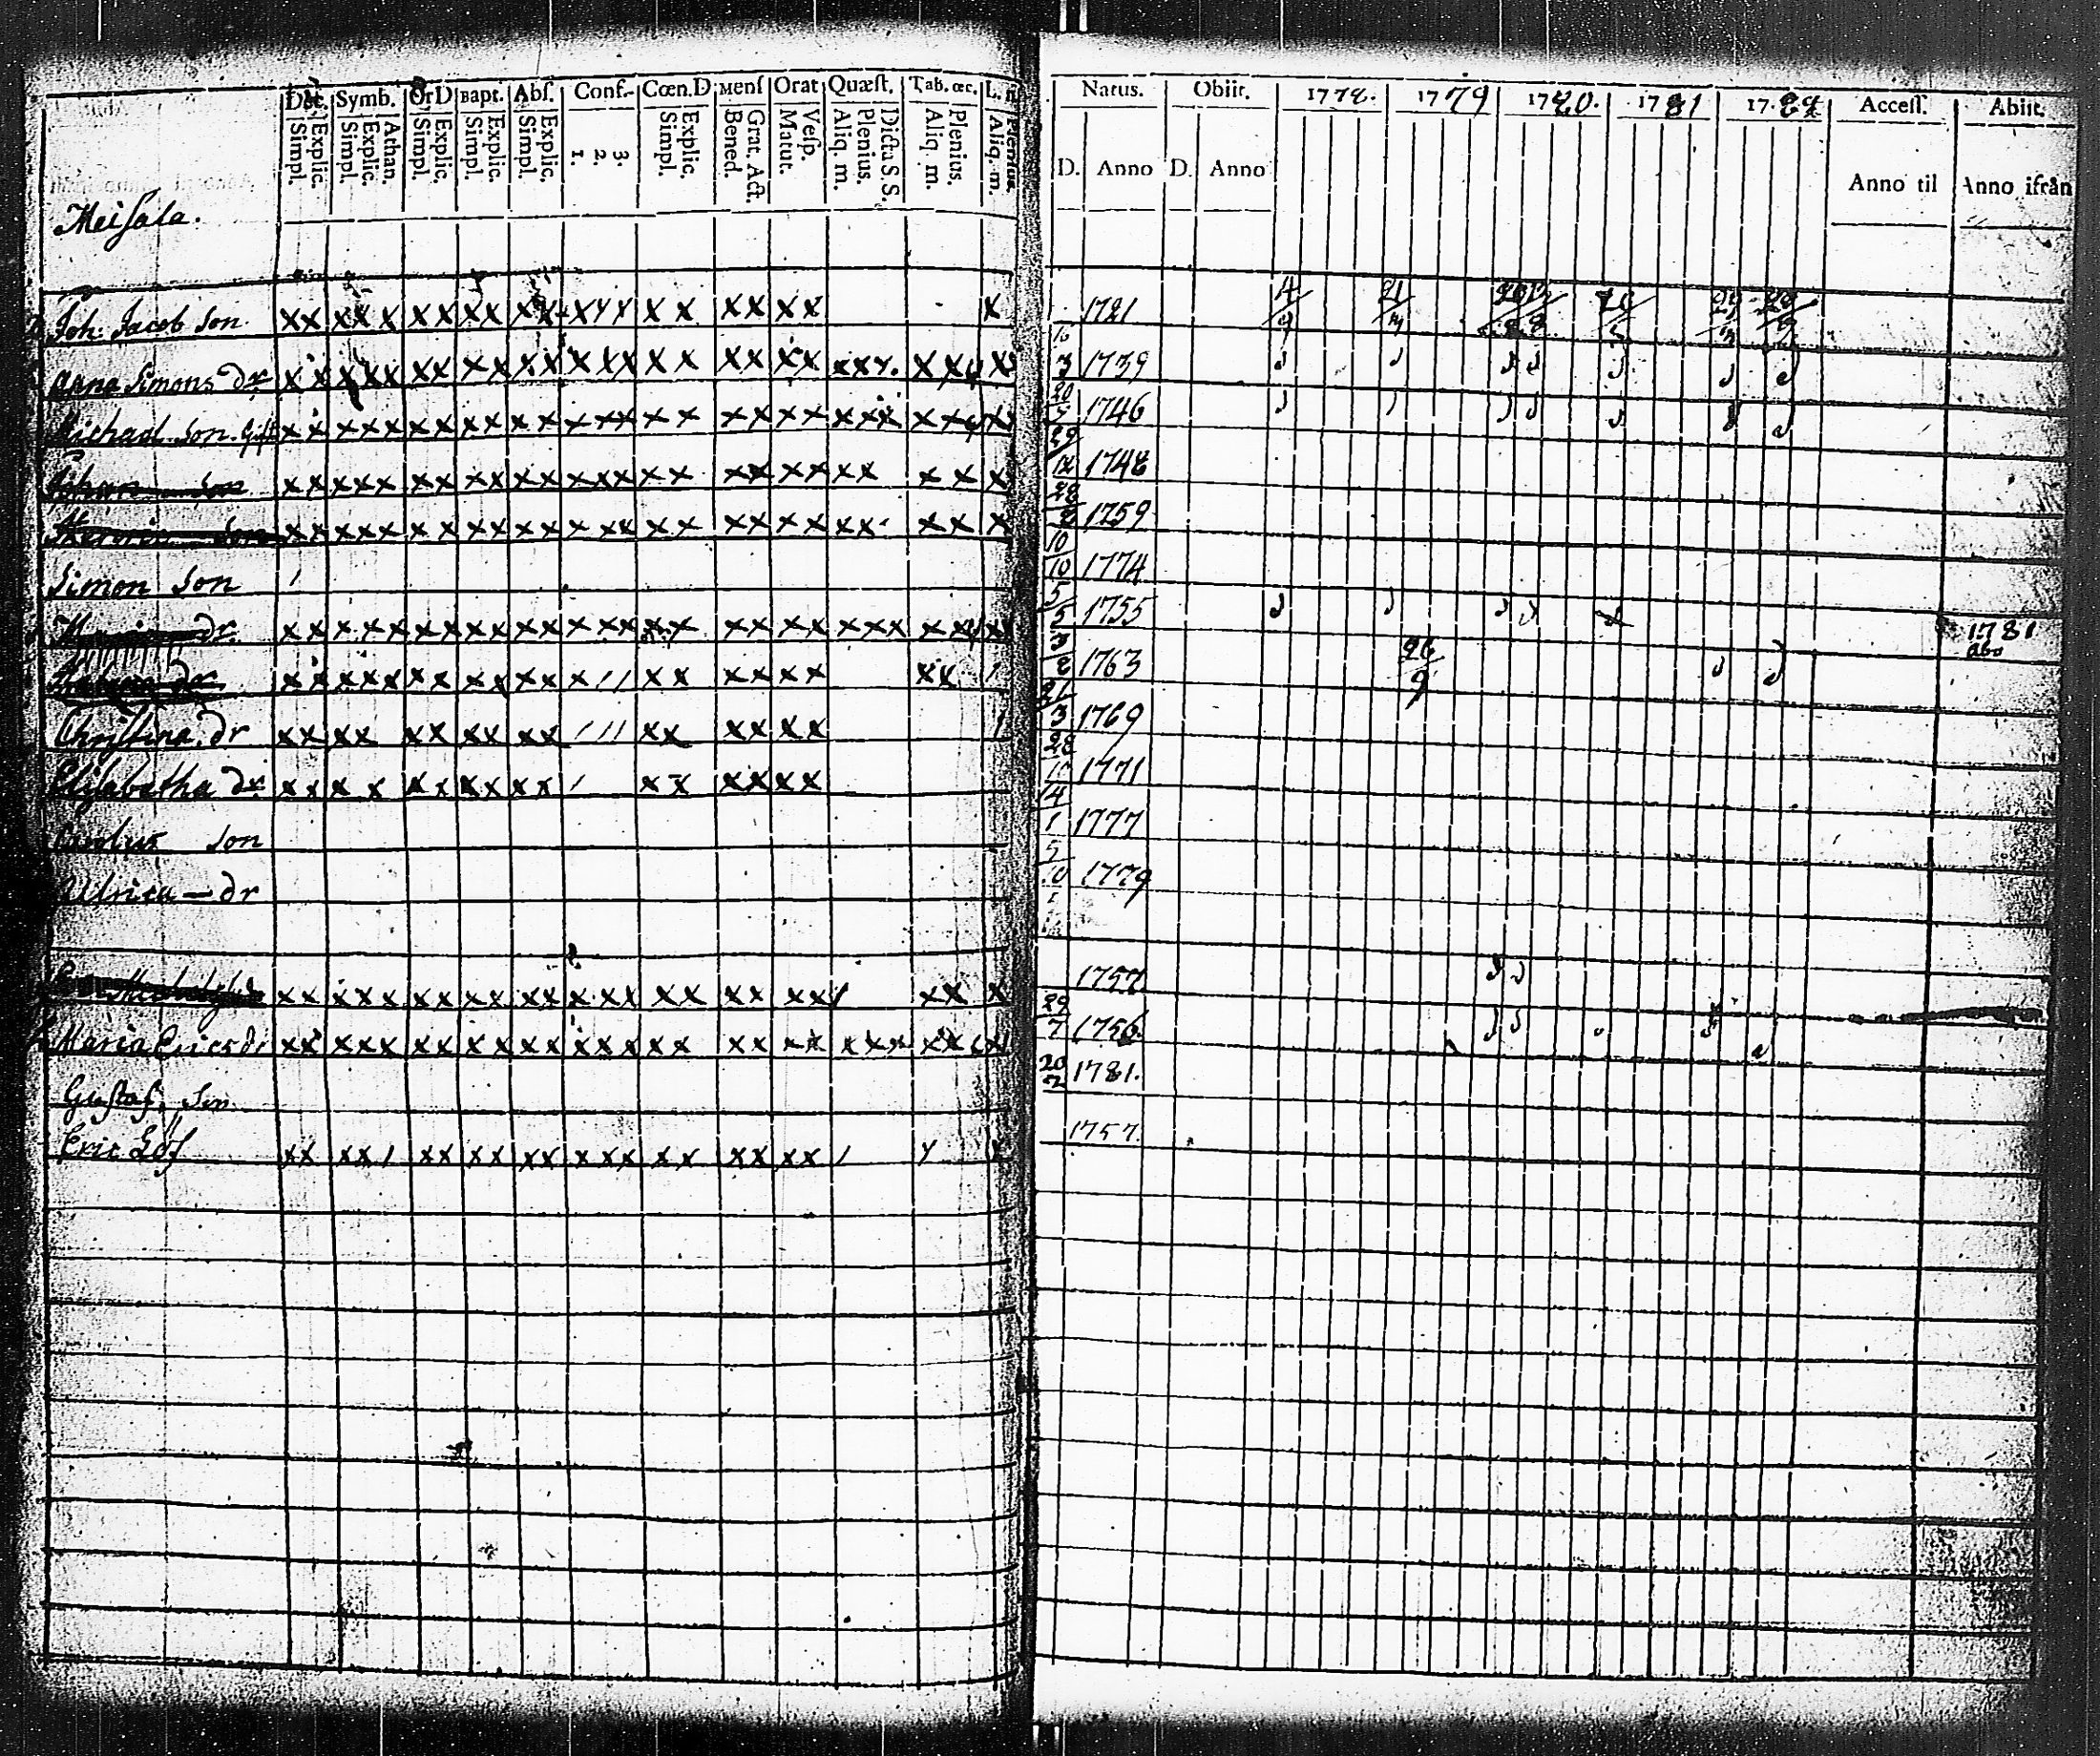 Dec. Symb. Or D Bapt. Abſ. Conf. Cœn. D Menſ Orat Quæſt. Tab. œc. L. n
Explic. Simpl. Athan. Explic. Simpl. Explic. Simpl. Explic. Simpl. Explic. Simpl. 3. 2. 1. Explic. Simpl. Grat. Act. Bened. Veſp. Matut. Dicta S S. Plenius. Aliq. m. Plenius. Aliq. m. Plenius. Aliq. m.
Natus. Obiit. 1778. 1779 1780. 1781 1782 Acceſſ. Abiit.
D. Anno D. Anno Anno til Anno ifrån
Meiſala.
Joh. Jacob Son xx xxx xx xx xx xxx xx xx xx x 1721 4/7 21/7
Anna Simons dr xx xxx xx xx xx xxx xx xx xx xxx xxx x 3 1739
Michael Son Gift xx xxx xx xx xx xxx xx xx xx xxx xxx 1746
Johan Son xx xxx xx xx xx xxx xx xx xx xx xx x 29/12 1748
Son xx xxx xx xx xx xxx xx xx xx xx xx x 28/2 1759
Simon Son 10/10 1774
Maria dr xx xxx xx xx xx xxx xx xx xx xxx xx 5/5 1755 1781 Abo
dr xx xxx xx xx xx x// xx xx xx xx / 3/2 1763 26/9
Chriſtina dr xx xx xx xx xx /// xx xx xx 21/3 1769
Eliſabetha dr xx xx xx xx xx / xx xx xx 28 1771
Carolus Son 14/1 1777
Ulrica — dr 5/10 1779
xx xxx xx xx xx xxx xx xx xx/ xx x 1757
Maria Erics dr xx xxx xx xx xx xxx xx xx xx xxx xx 29/7 1756.
Guſtaf Son 20/2 1781.
Eric Löf xx xx/ xx xx xx xxx xx xx xx / y x 1757.